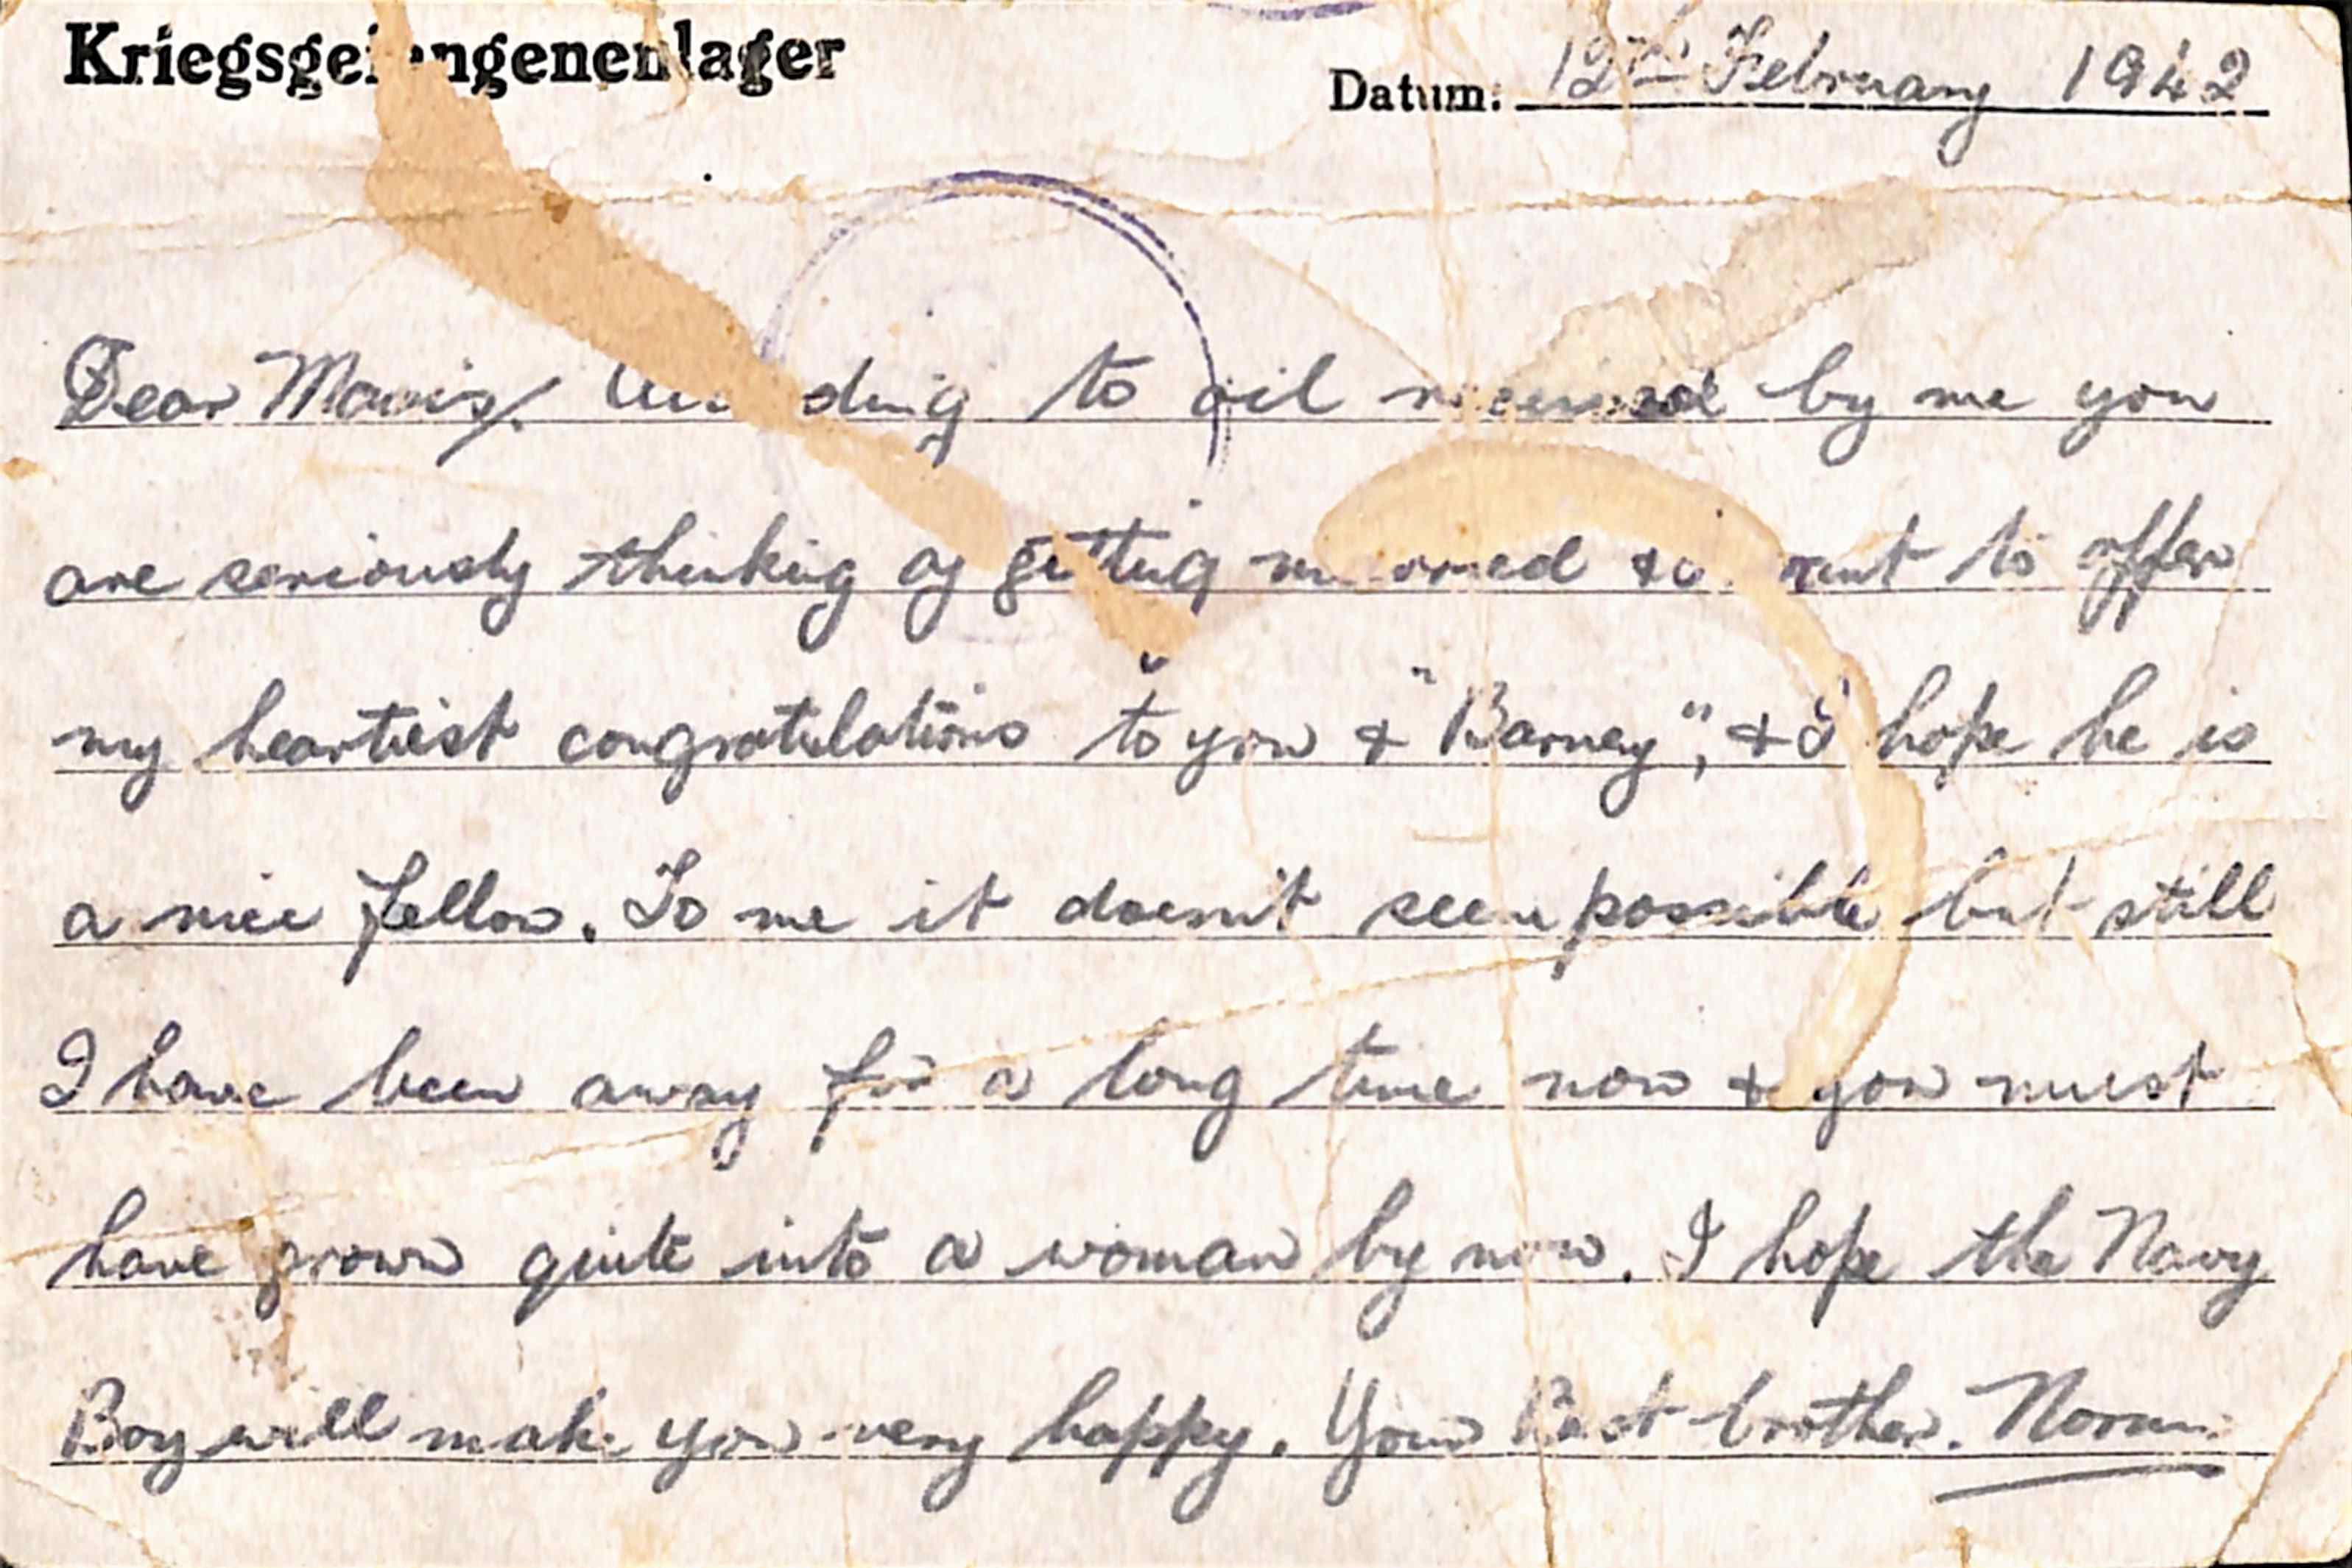 Kriegsgefangenenlager
Datum: 12th February 1942
Dear Mavis, to received by me you
are seriously thinking of getting to offer
my heartiest congratulations to you & "Barney", & I hope he is
a nice fellow. To me it doesn't seem possible but still
I have been away for a long time now & you must
have grown quite into a woman by now. I hope the Navy
Boy will make you very happy. Your Best brother.